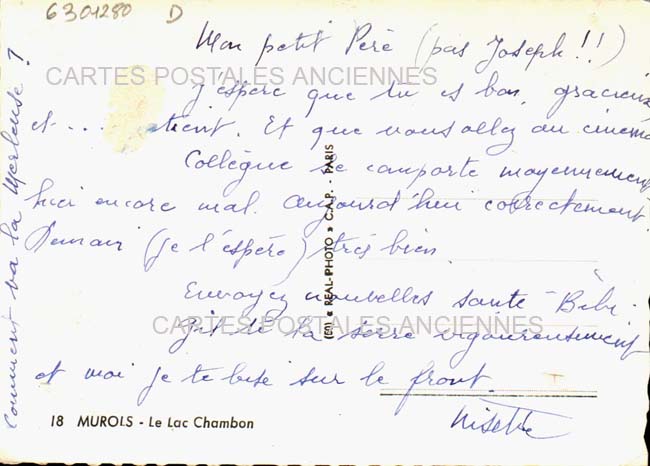 6301280 D
Mon petit Père (pas Joseph!!)
CARTES POSTALES ANCIENNES
J'espère que tu es bon, gracieux,
et ... patient. Et que vous allez au cinéma
Collègue se comporte moyennement
hier encore mal. Aujourd'hui correctement.
Demain (je l'espère) très bien.
Envoyez nouvelles santé Bébé.
CARTES POSTALES ANCIENNES
te serre vigoureusement
et moi je te bise sur le front.
Nisette
Comment va la ?
(EN) « REAL-PHOTO » C.A.P. - PARIS
18 MUROLS - Le Lac Chambon